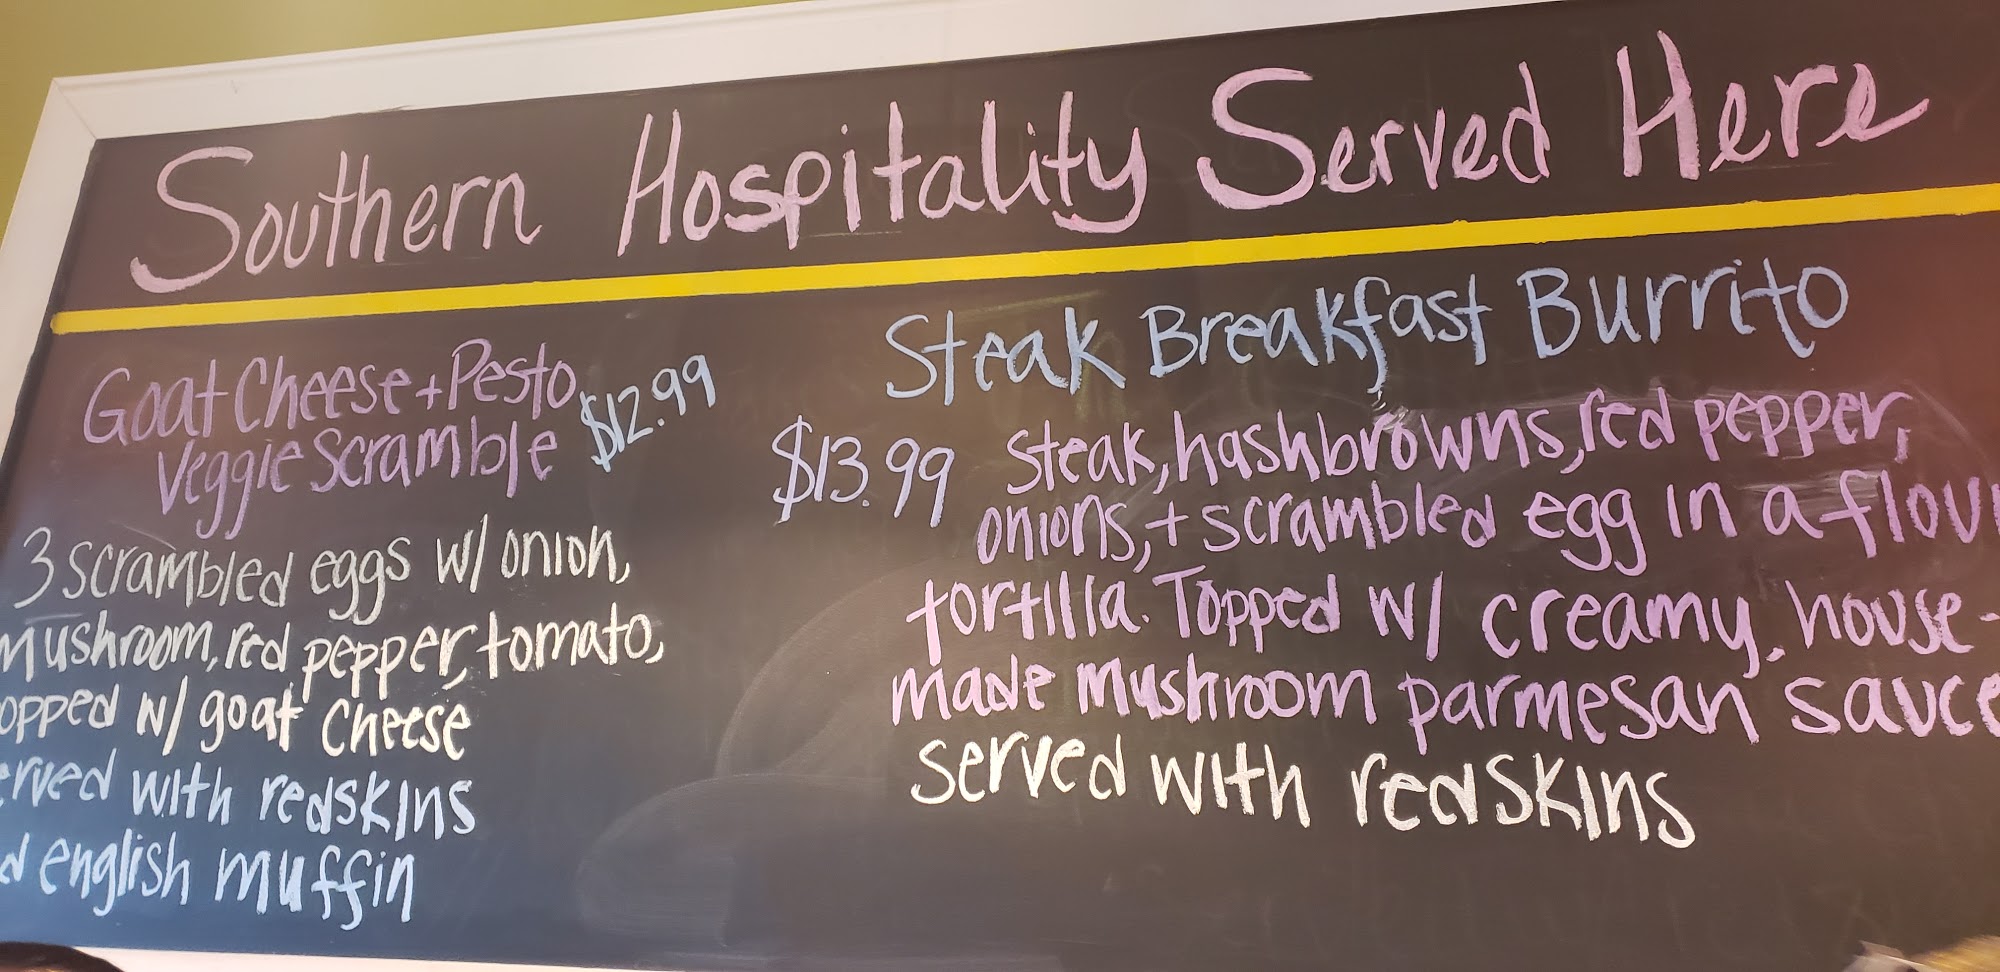 Southern Hospitality Served Here
Goat Cheese + Pesto
Veggie Scramble $12.99
3 scrambled eggs w/ onion,
mushroom, red pepper, tomato,
opped w/ goat cheese
erved with redskins
d english muffin
Steak Breakfast Burrito
$13.99 steak, hashbrowns, red pepper,
onions, + scrambled egg in a flour
tortilla. Topped w/ creamy, house-
made mushroom parmesan sauce
served with redskins